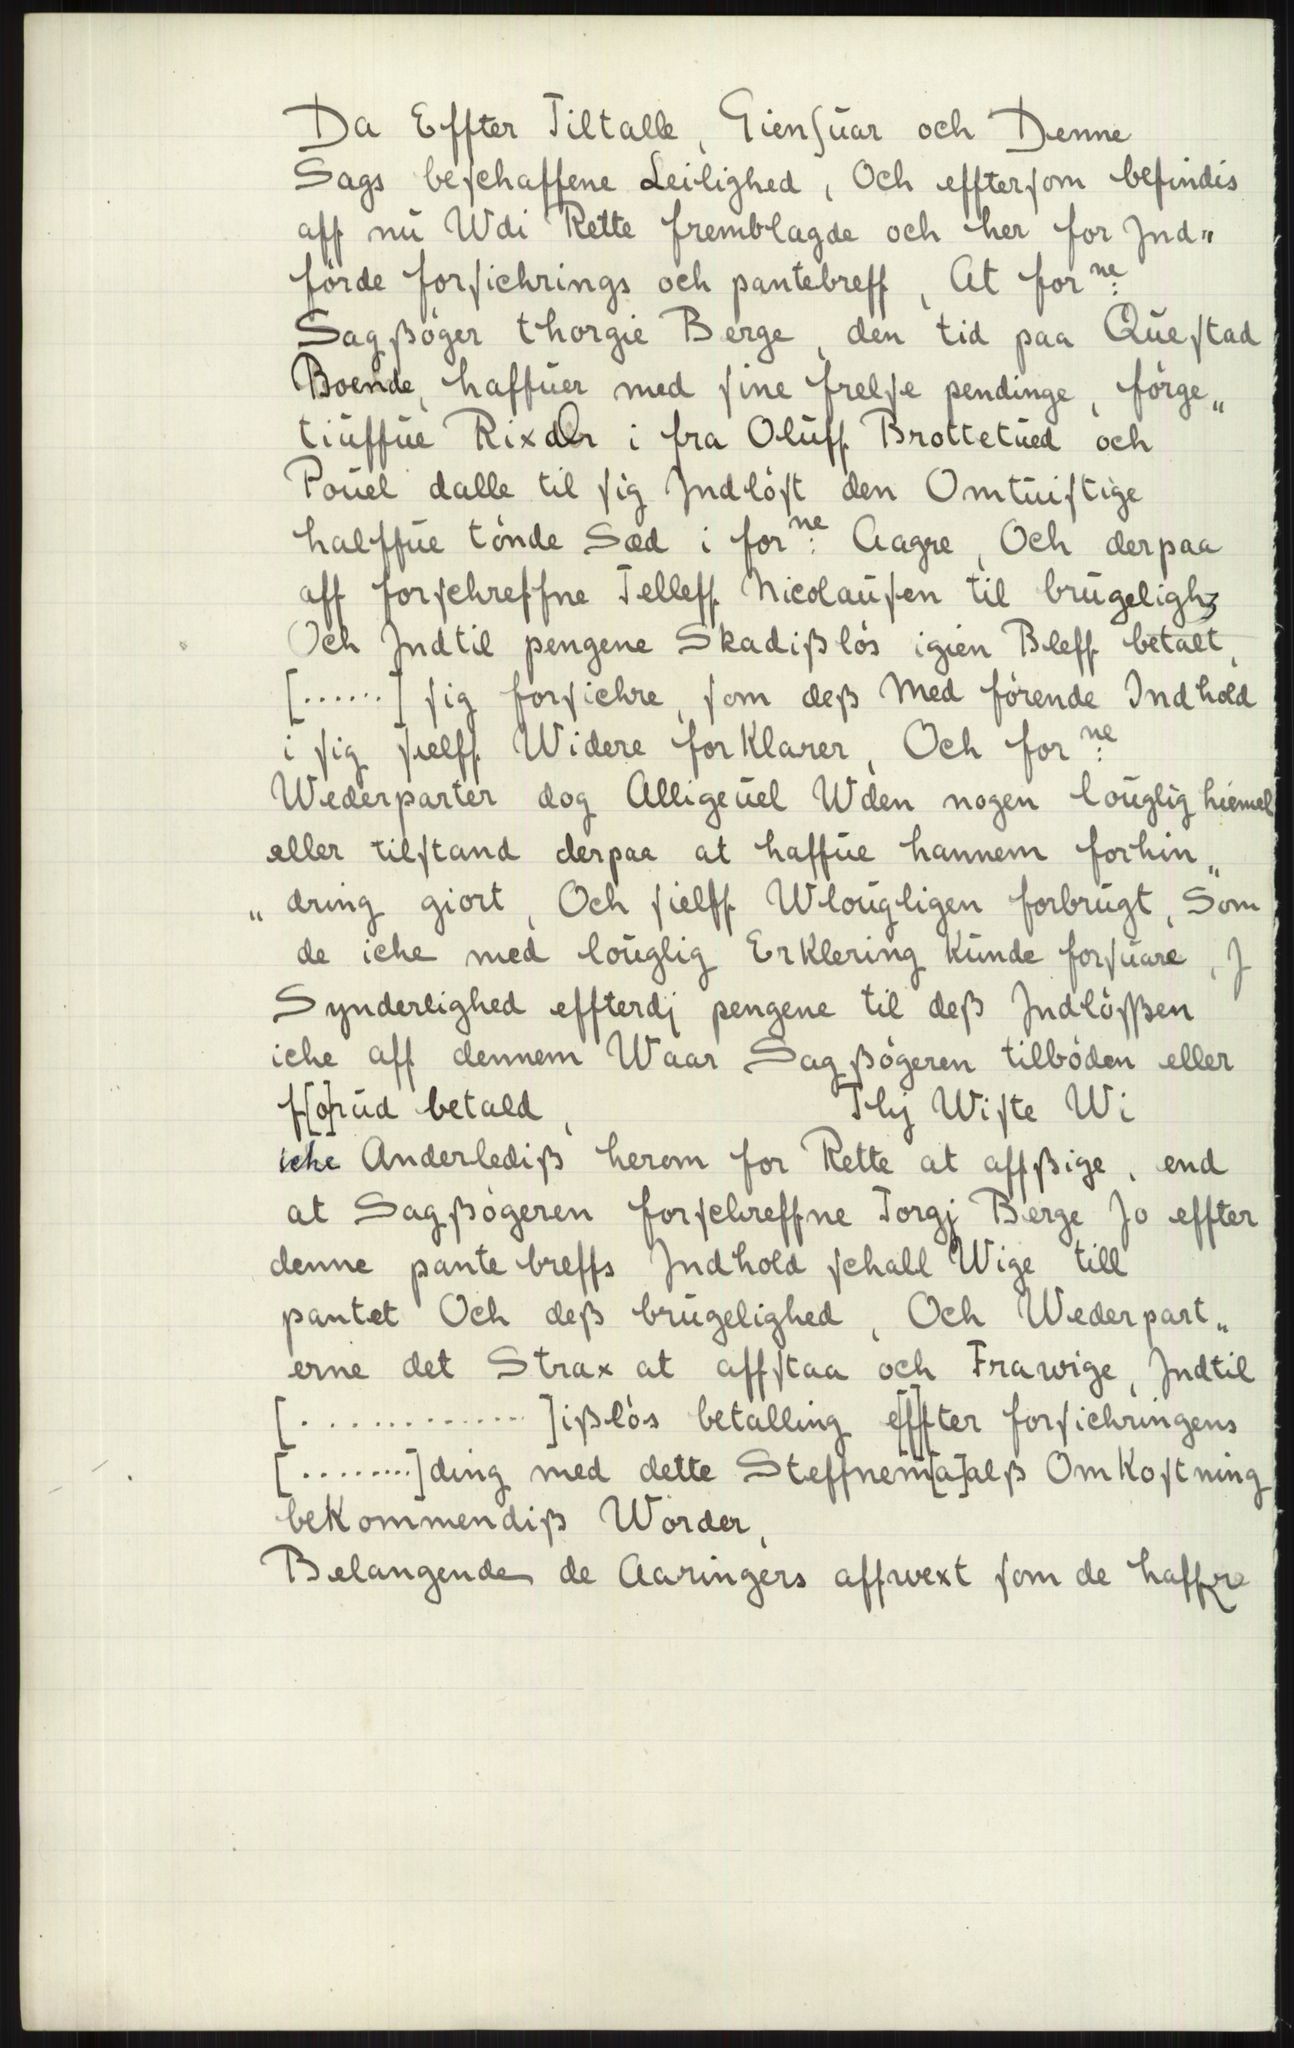 Da Effter Tiltalle, Gienſuar och Denne
Sags beſchaffene Leilighed, Och effterſom befindis
aff nu Wdi Rette fremblagde och her for Ind"
förde forſichrings och pantebreff, At for ne:
Sagßöger thorgie Berge, den tid paa Queſtad
Boende, haffuer med ſine frelſe pendinge, förge"
tiuffue Rixdlr i fra Oluff Brottetued och
Pouel dalle til ſig Jndlöſt den Omtuiſtige
halffue tönde Sæd i for ne: Aagre, Och derpaa
aff forſchreffne Telleff Nicolauſen til brugelighꝫ
Och Jndtil pengene Skadißlös igien Bleff betalt,
[......] ſig forſichre, ſom deß Med förende Indhold
i ſig ſielff Widere forKlarer, Och for ne:
Wederparter dog Alligeuel Wden nogen louglig hiemel
eller tilſtand derpaa at haffue hannem forhin"
" dring giort, Och ſielff Wlougligen forbrugt, Som
de iche med louglig ErKlering Kunde forſuare, J
Synderlighed effterdj pengene til deß Jndlöſßen
iche aff dennem Waar Sagßögeren tilböden eller
f[o]rud betald, Thj Wiſte Wi
iche Anderlediß herom for Rette at affßige, end
at Sagßögeren forſchreffne Torgj Berge Jo effter
denne pante breffs Jndhold ſchall Wige till
pantet Och deß brugelighed, Och Wederpart"
erne det Strax at affſtaa och Frawige, Jndtil
[.............]ißlös betalling e[ff]ter forſichringens
[........]ding med dette Steffnem[a]alß OmKoſtning
beKommendiß Worder,
Belangende de Aaringers affwext ſom de haffue